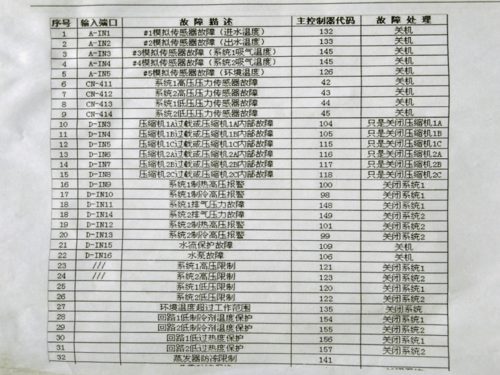 序号 输入端口 故 障 描 述 主控制器代码 故 障 处 理
1 A-IN1 #1模拟传感器故障（进水温度） 132 关机
2 A-IN2 #2模拟传感器故障（出水温度） 133 关机
3 A-IN3 #3模拟传感器故障（系统1吸气温度） 145 关机
4 A-IN4 #4模拟传感器故障（系统2吸气温度） 145 关机
5 A-IN5 #5模拟传感器故障（环境温度） 126 关机
6 CN-411 系统1高压压力传感器故障 42 关机
7 CN-412 系统2高压压力传感器故障 43 关机
8 CN-413 系统1低压压力传感器故障 44 关机
9 CN-414 系统2低压压力传感器故障 45 关机
10 D-IN3 压缩机1A过载或压缩机1A内部故障 104 只是关闭压缩机1A
11 D-IN4 压缩机1B过载或压缩机1B内部故障 105 只是关闭压缩机1B
12 D-IN5 压缩机1C过载或压缩机1C内部故障 115 只是关闭压缩机1C
13 D-IN6 压缩机2A过载或压缩机2A内部故障 116 只是关闭压缩机2A
14 D-IN7 压缩机2B过载或压缩机2B内部故障 117 只是关闭压缩机2B
15 D-IN8 压缩机2C过载或压缩机2C内部故障 118 只是关闭压缩机2C
16 D-IN9 系统1制热高压报警 100 关闭系统1
17 D-IN10 系统1制冷高压报警 98 关闭系统1
18 D-IN11 系统1排气压力故障 148 关闭系统1
19 D-IN11 系统2排气压力故障 149 关闭系统2
19 D-IN12 系统2制热高压报警 101 关闭系统2
20 D-IN13 系统2制冷高压报警 99 关闭系统2
21 D-IN15 水流保护故障 109 关机
22 D-IN16 水泵故障 106 关机
23 /// 系统1高压限制 121 关闭系统1
24 /// 系统2高压限制 123 关闭系统2
25 系统1低压限制 120 关闭系统1
26 系统2低压限制 122 关闭系统2
27 环境温度超过工作范围 135 关闭系统
28 回路1低制冷剂温度保护 154 关闭系统1
29 回路2低制冷剂温度保护 155 关闭系统2
30 回路1低过热度保护 156 关闭系统1
31 回路2低过热度保护 157 关闭系统2
32 蒸发器防冻限制 141